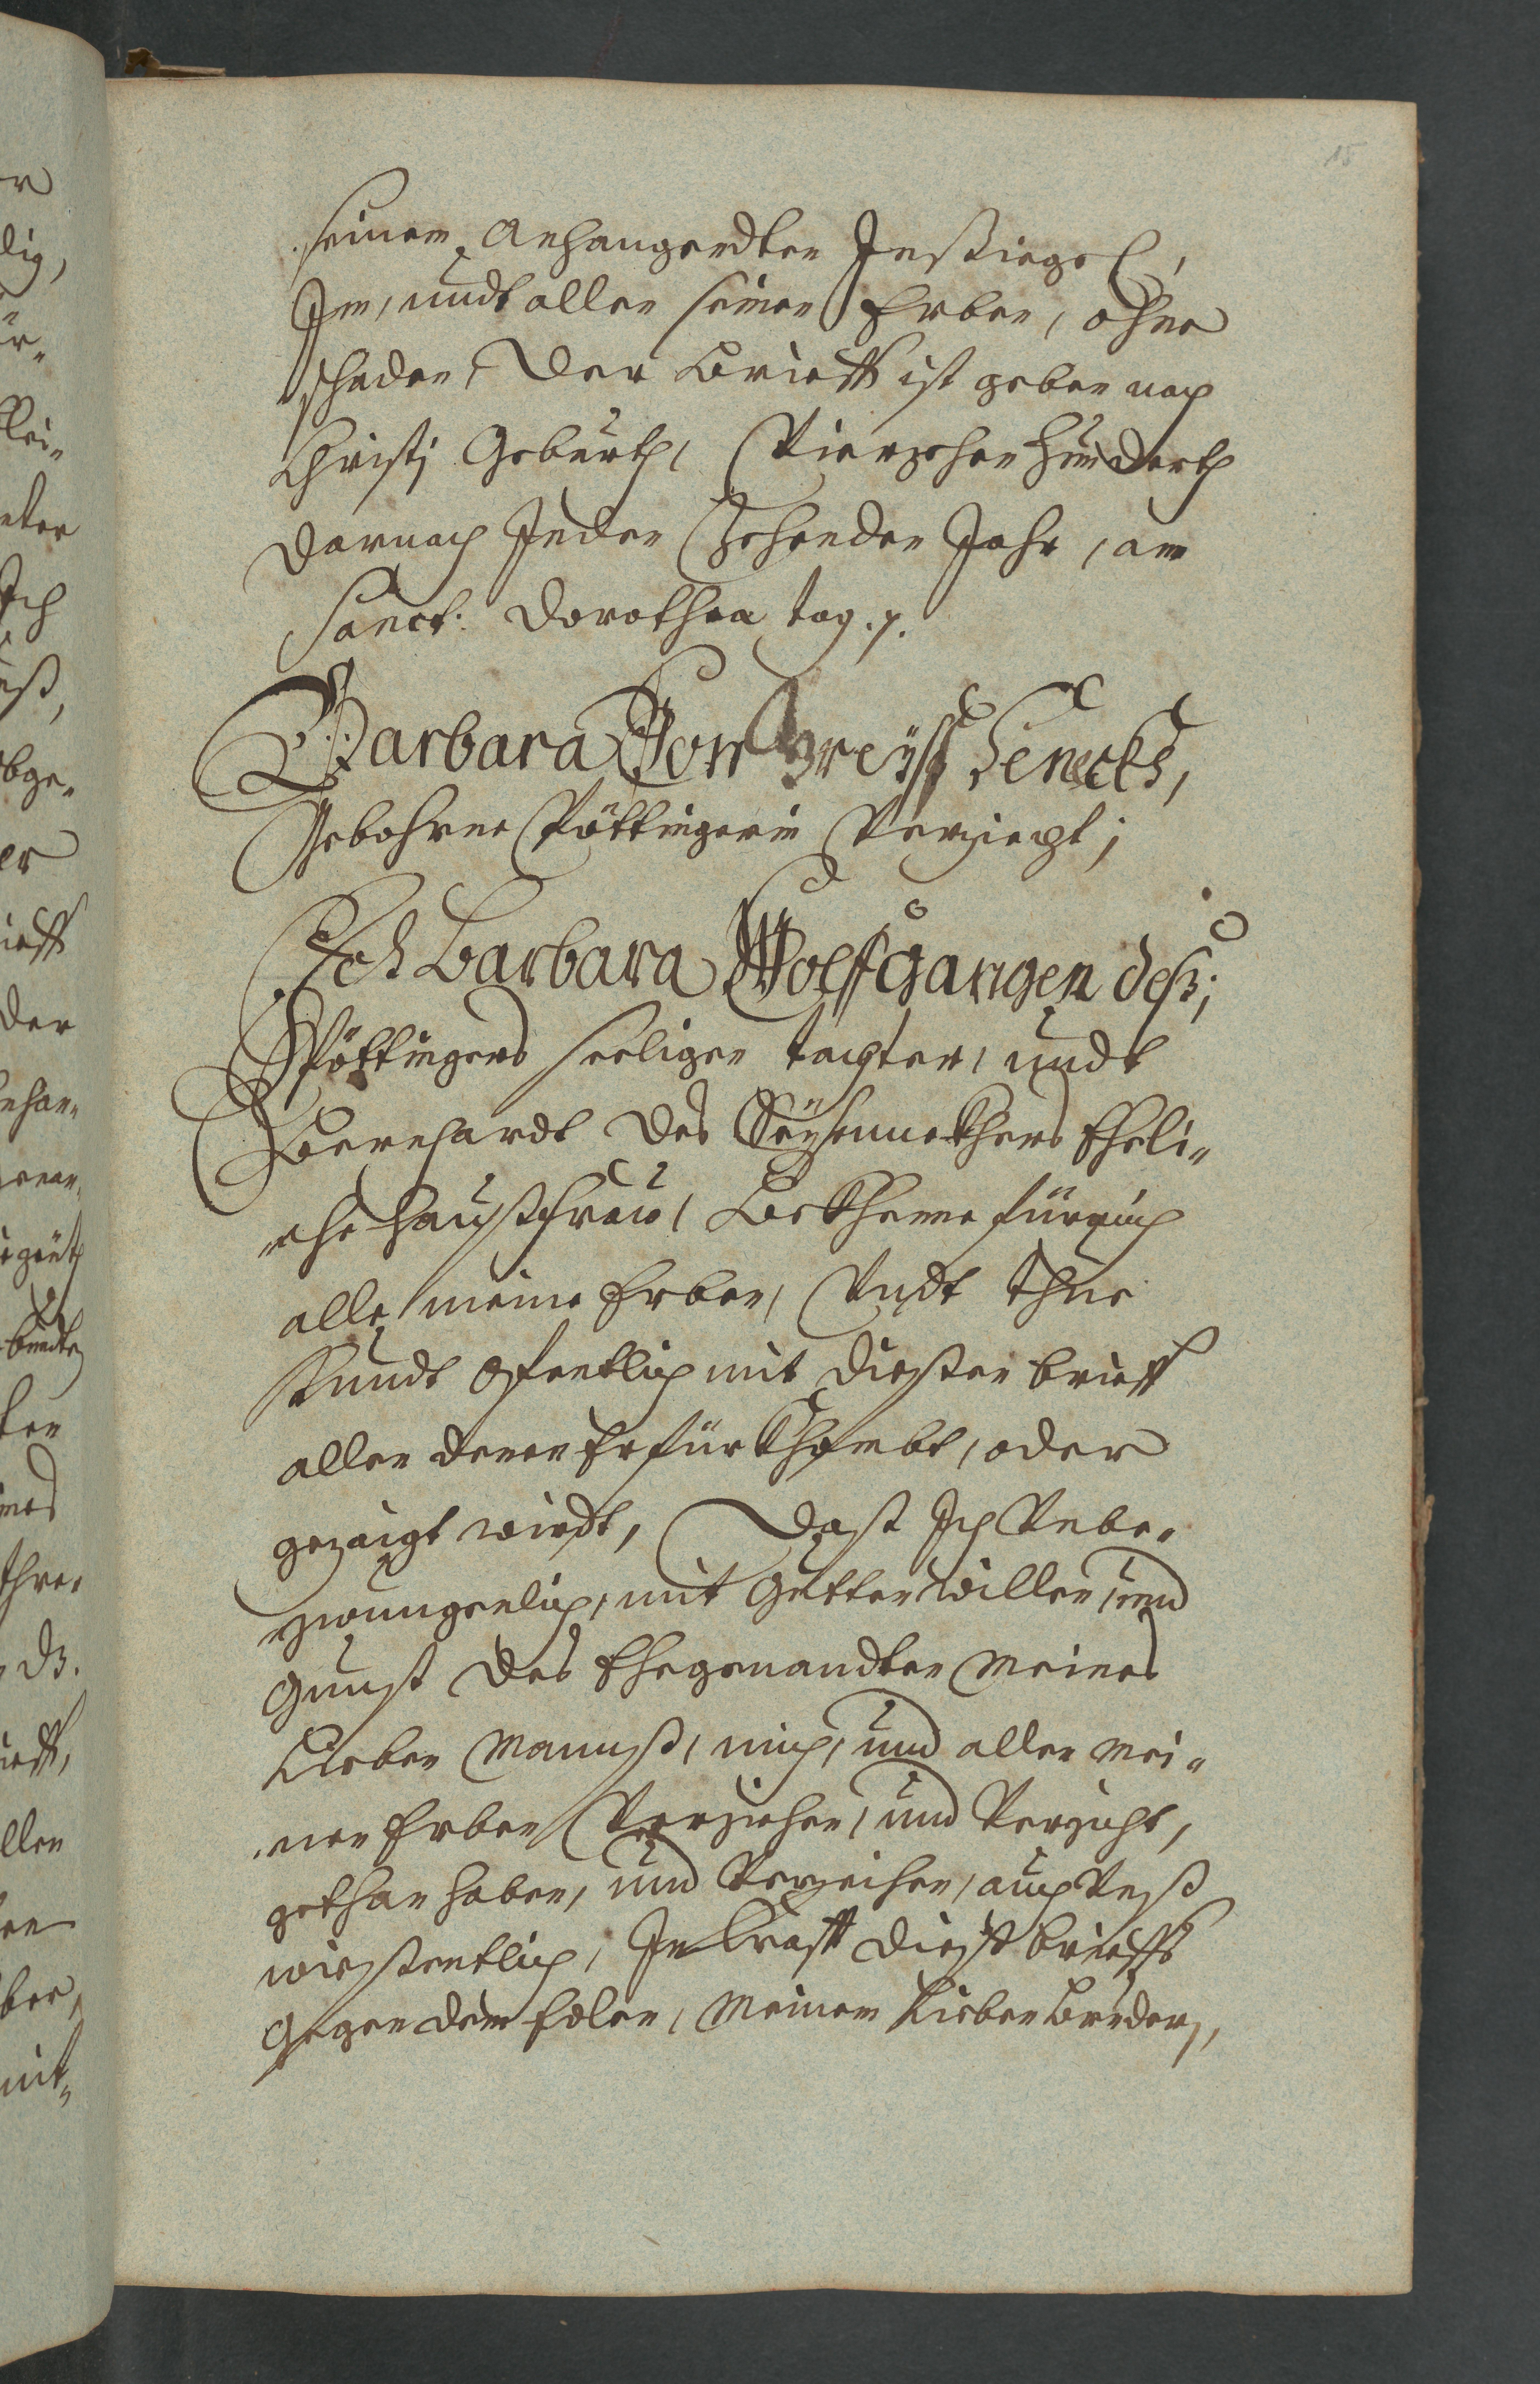 15
seinem Anhangendten Insiegel,
Im, undt allen seinen Erben, ohne
schaden, Der Brieff ist geben nach
Christj Geburth, Vierzehen Hunderth
darnach Jnden Zehenden Jahr, am
Sanct. Dorothea tag.
Barbara Von
Gebohrne Pöttingerin Verziecht;
Ich Barbara Wolfgangen deß;
Pöttingers seeligen tochter, undt
Bernhardt des Eheli-
che haußfraw, Bekhenne für mich
alle meine Erben, Vndt thue
Kundt Ofentlich mit diesten brieff
allen denen Er fürkhombt, oder
gezaigt wirdt, Daß Ich Vnbe-
zwungenlich, mit Gutten willen, und
gunst des Ehegenandten Meines
Lieben Mannß, mich, und allen Mei-
nen Erben Verziehen, und Verzicht,
gethan haben, und Verzeihen, auch Vnß
wissentlich, In Krafft diest brieffs
gegen dem Edlen, Meinem Lieben Bruder,